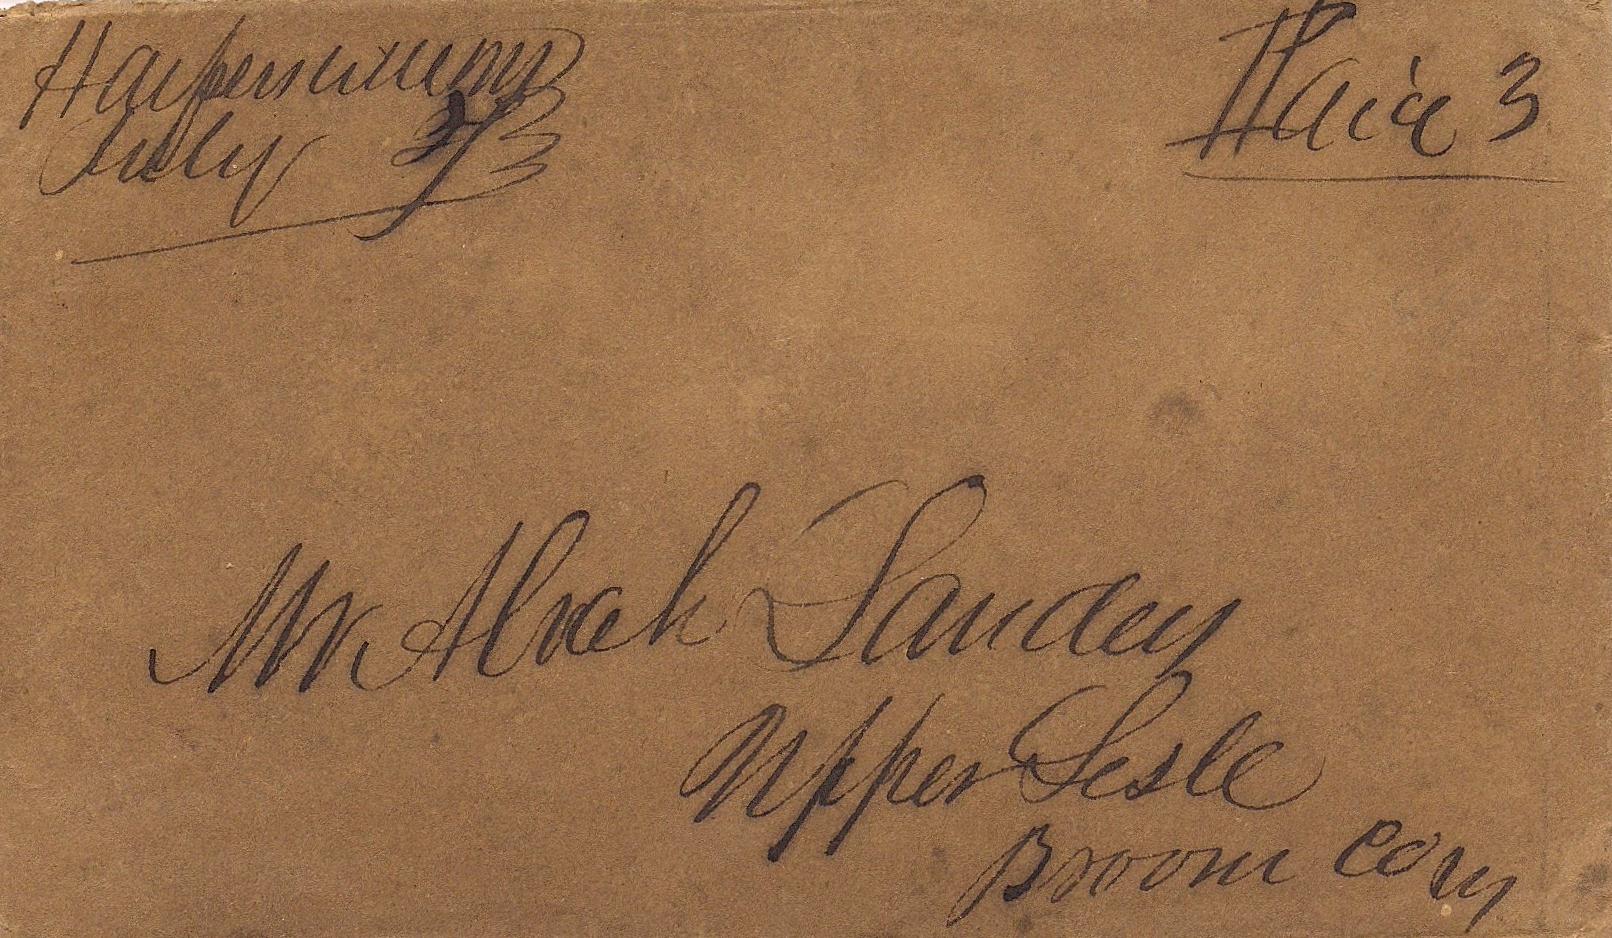 Harpersville NY
July 23
Paid 3
Mr Alvah Landey
Upper Lesle
Broom Co NY